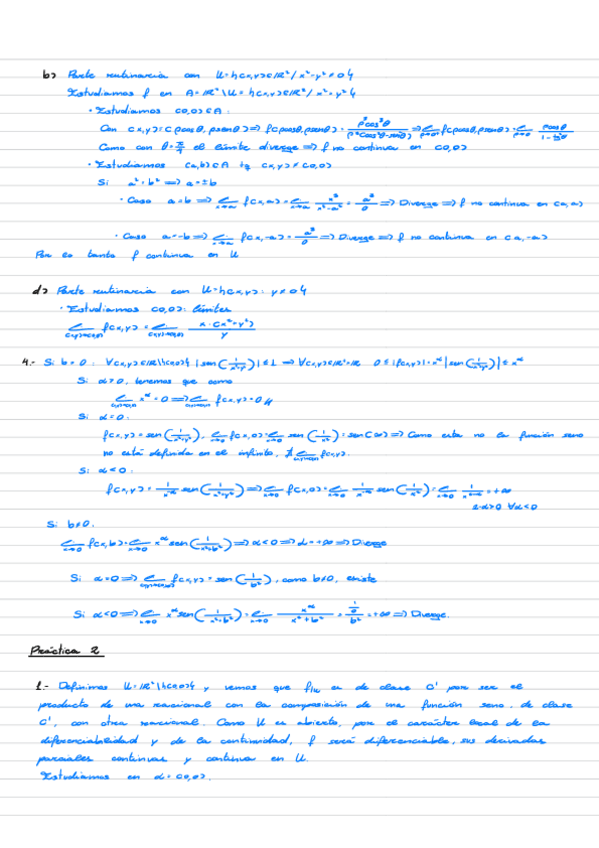 b) Parte rutinaria con U={(x,y)∈ℝ²/ x²-y²≠0}
Estudiamos f en A=ℝ²\U={(x,y)∈ℝ²/ x²=y²}
· Estudiamos (0,0)∈A:
Con (x,y)=(ρcosθ, ρsenθ) ⇒ f(ρcosθ, ρsenθ)=
Como con θ=π/4 el límite diverge ⇒ f no continua en (0,0)
· Estudiamos (a,b)∈A tq (x,y)≠(0,0)
Si a²=b² ⇒ a=±b
· Caso a=b ⇒ f(x,a)= x³/(x²-a²) = a³/0 ⇒ Diverge ⇒ f no continua en (a,a)
· Caso a=-b ⇒ f(x,-a)= a³/0 ⇒ Diverge ⇒ f no continua en (a,-a)
Por lo tanto f continua en U
d) Parte rutinaria con U={(x,y): y≠0}
· Estudiamos (0,0): límites
f(x,y)= x·(x²+y²)/y
4.- Si b=0: ∀(x,y)∈ℝ\{(0,0)} |sen(1/(x²+y²))|≤1 ⇒ ∀(x,y)∈ℝ² 0≤|f(x,y)|=x^α|sen(1/(x²+y²))|≤x^α
Si α>0, tenemos que como
x^α=0 ⇒ f(x,y)=0
Si α=0:
f(x,y)=sen(1/(x²+y²)), f(x,0)= sen(1/x²)=sen(∞) ⇒ Como esta no la función seno
no está definida en el infinito, ∄ f(x,y).
Si α<0:
f(x,y)= sen(1/(x²+y²)) ⇒ f(x,0)= sen(1/x²)= =+∞
2-α>0 ∀α<0
Si b≠0:
f(x,b)= x^α sen(1/(x²+b²)) ⇒ α<0 ⇒ =+∞ ⇒ Diverge
Si α=0 ⇒ f(x,y)=sen(1/b²), como b≠0, existe
Si α<0 ⇒ x^α sen(1/(x²+b²))= x^α/(x²+b²) = =+∞ ⇒ Diverge.
Práctica 2
1.- Definimos U=ℝ²\{(0,0)} y vemos que f|u es de clase C' por ser el
producto de una racional con la composición de una función seno, de clase
C', con otra racional. Como U es abierto, por el carácter local de la
diferenciabilidad y de la continuidad, f será diferenciable, sus derivadas
parciales continuas y continua en U.
Estudiamos en α=(0,0).